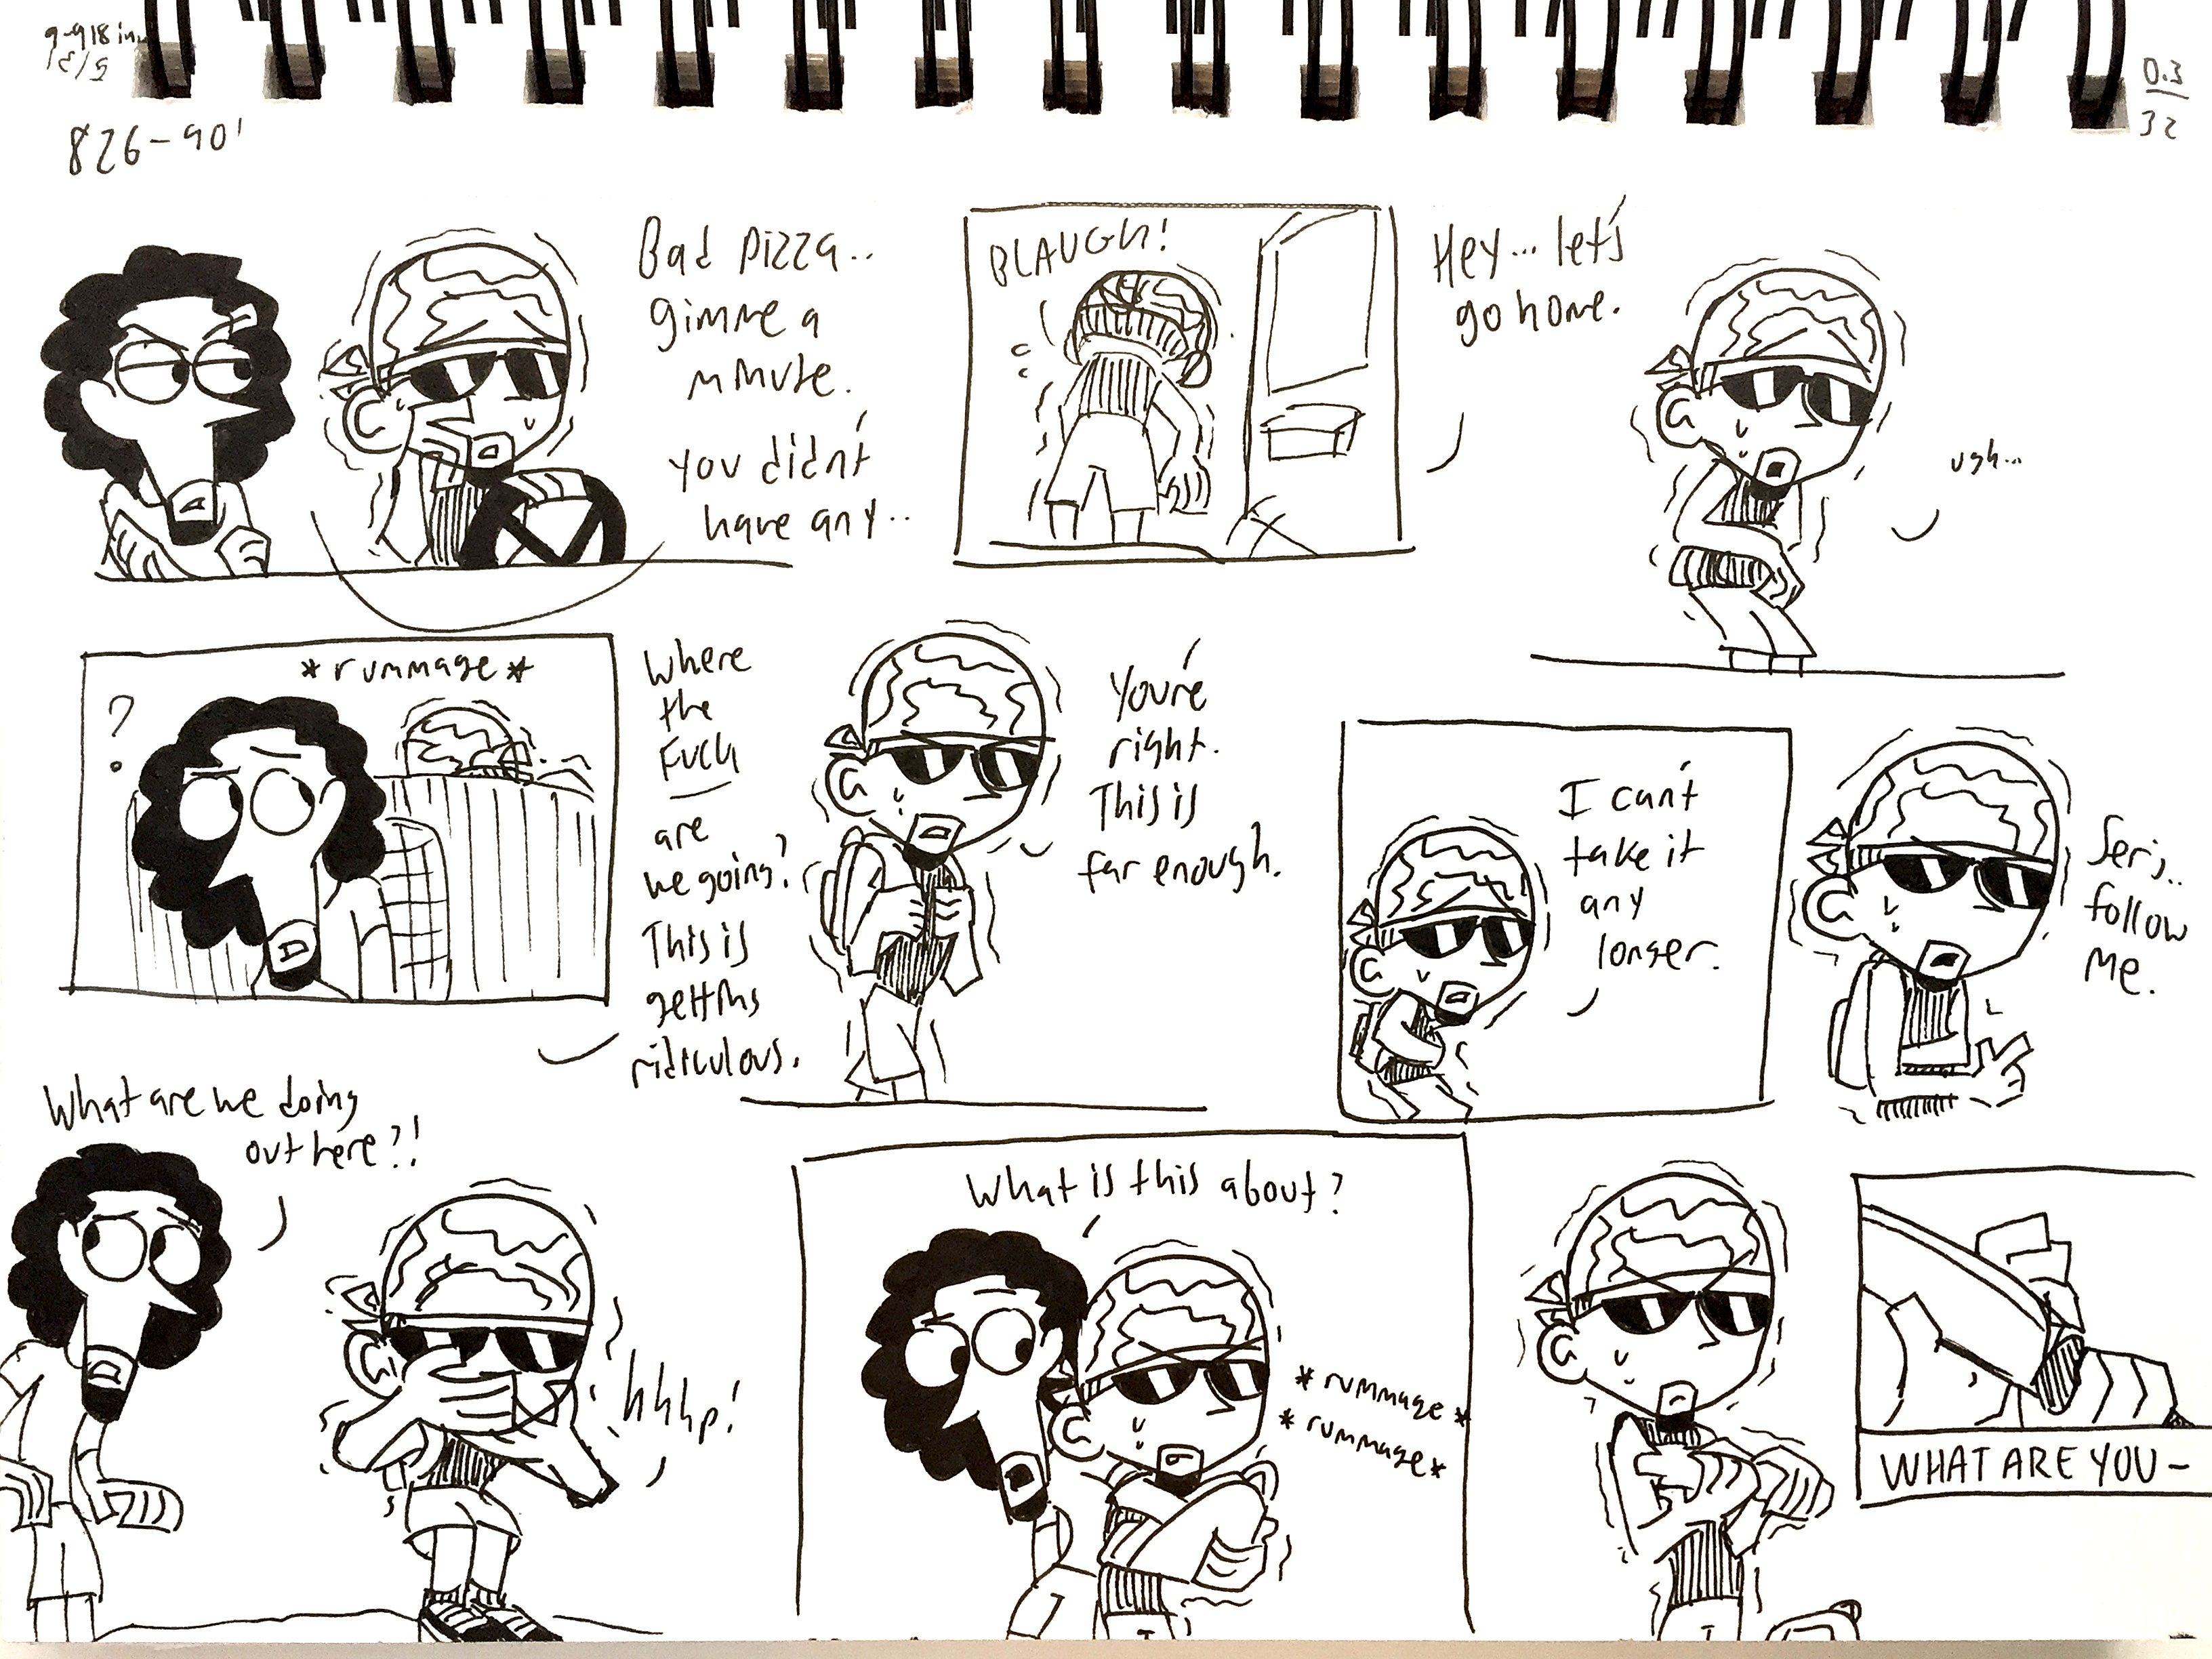 0.3
32
826-901
Bad pizza..
gimme a
minute.
you didn't
have any..
BLAUGH!
Hey... let's
go home.
ugh...
*rummage*
?
Where
the
Fuck
are
we going?
This is
getting
ridiculous.
You're
right.
This is
far enough.
I can't
take it
any
longer.
Serj..
follow
me.
What are we doing
out here?!
hhhp!
What is this about?
*rummage*
*rummage*
WHAT ARE YOU-